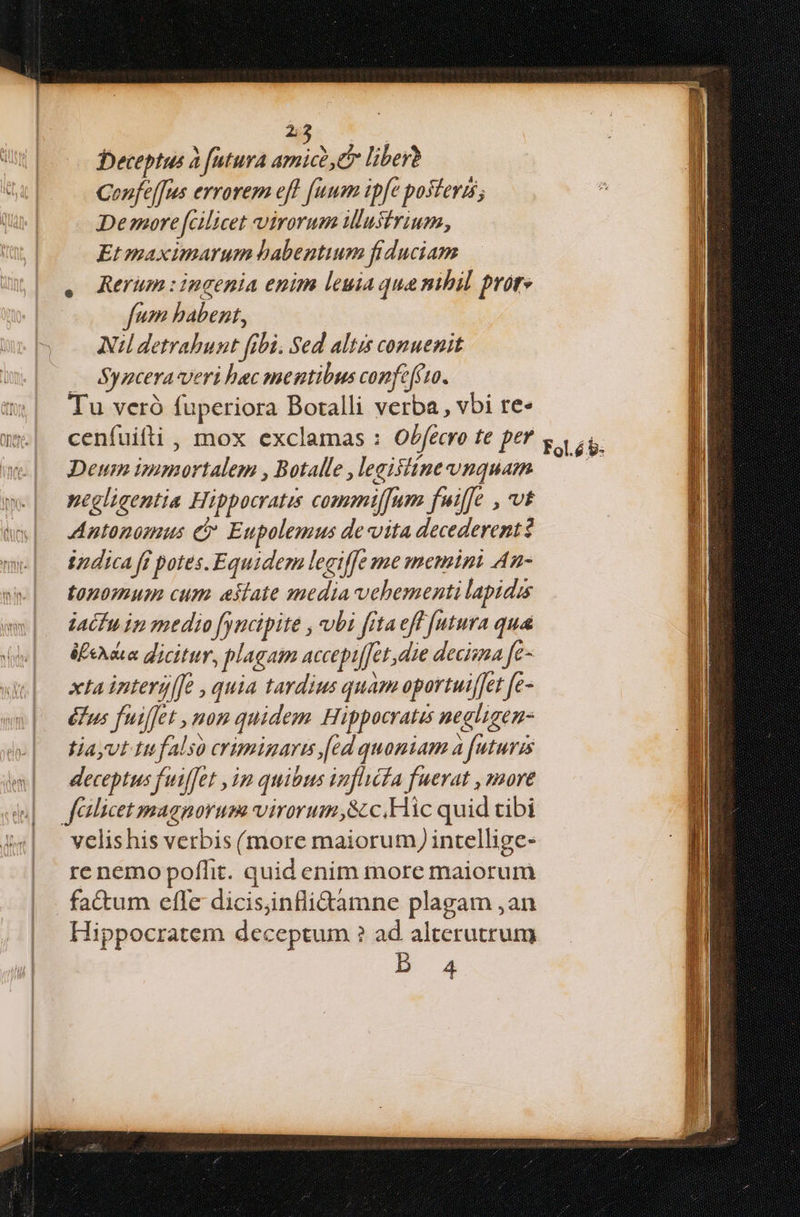 23
Deceptus à ſutura amicè, & liberè
Confeſſus errorem eſt ſuum ipſe posteris,
De more ſcilicet virorum illustrium,
Et maximarum habentium fiduciam
Rerum: ingenia enim leuia quæ nihil pror-
ſum habent,
Nil detrahunt ſibi. Sed altis conuenit
Syncera veri hæc mentibus confeſsio.
Tu verò ſuperiora Botalli verba, vbi re-
cenſuiſti, mox exclamas: Obſecro te per
Deum immortalem, Botalle, legistine vnquam
negligentia Hippocratis commiſſum fuiſſe, vt
Antonomus & Eupolemus de vita decederent?
indica ſi potes. Equidem legiſſe me memini An-
tonomum cum æstate media vehementi lapidis
iactu in medio ſyncipite, vbi ſita eſt ſutura quæ
dicitur, plagam accepiſſet, die decima ſe-
xta interijſſe, quia tardius quàm oportuiſſet ſe-
ctus fuiſſet, non quidem Hippocratis negligen-
tia, vt tu falsò criminaris, ſed quoniam à ſuturis
deceptus fuiſſet, in quibus inflicta fuerat, more
ſcilicet magnorum virorum, &c. Hic quid tibi
velis his verbis (more maiorum) intellige-
re nemo poſſit. quid enim more maiorum
factum eſſe dicis, inflictámne plagam, an
Hippocratem deceptum? ad alterutrum
B 4
Fol. 6 b.